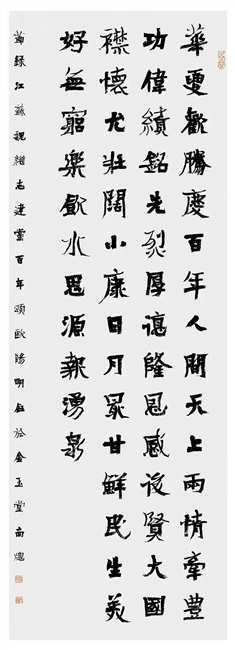 華夏歡騰慶百年人間天上兩情牽豐
功偉績銘先烈厚德隆恩感後賢大國
襟懷尤壯闊小康日月最甘鮮民生美
好無窮樂飲水思源報湧泉
錄江蘇魏繼志建黨百年頌歐陽明鈺於金玉堂南窗